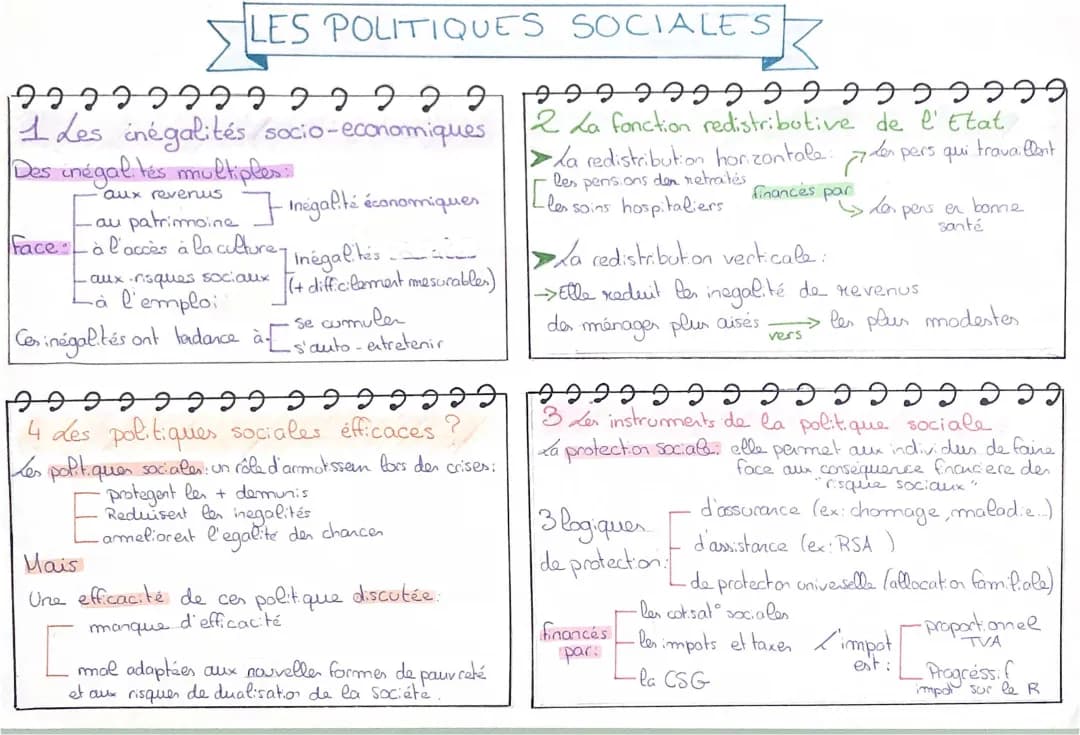 LES POLITIQUES SOCIALES
1 Les inégalités socio-economiques
Des inégalités multiples:
Face:
aux revenus
au patrimoine
Inégalité économiques
à l'accès à la culture
aux risques sociaux
à l'emploi
Inégalités
(+ difficilement mesurables)
Ces inégalités ont tendance à
se cumuler
s'auto-entretenir
2 La fonction redistributive de l'Etat
La redistribution horizontale:
les pensions des retraités
les soins hospitaliers
financés par
les pers qui travaillent
les pers en bonne
santé
La redistribution verticale:
→ Elle reduit les inegalité de revenus
des ménages plus aisés → les plus modestes
vers
4 Les politiques sociales éfficaces ?
Les politiques sociales: un rôle d'amortisseur lors des crises:
protegent les + demunis
Reduisent les inegalités
ameliorent l'egalité des chances
Mais
Une efficacité de ces politique discutée:
manque d'efficacité
mal adaptées aux nouvelles formes de pauvreté
et aux risques de dualisation de la société.
3 Les instruments de la politique sociale
La protection sociale: elle permet aux individus de faire
face aux conséquence financiere des
"risque sociaux"
3 logiques
de protection:
d'assurance (ex: chomage, maladie...)
d'assistance (ex: RSA )
de protection universelle (allocation familiale)
financés
par:
les cotisat° sociales
les impots et taxes
la CSG
L'impot
est:
proportionnel
TVA
Progréssif
impot sur le R